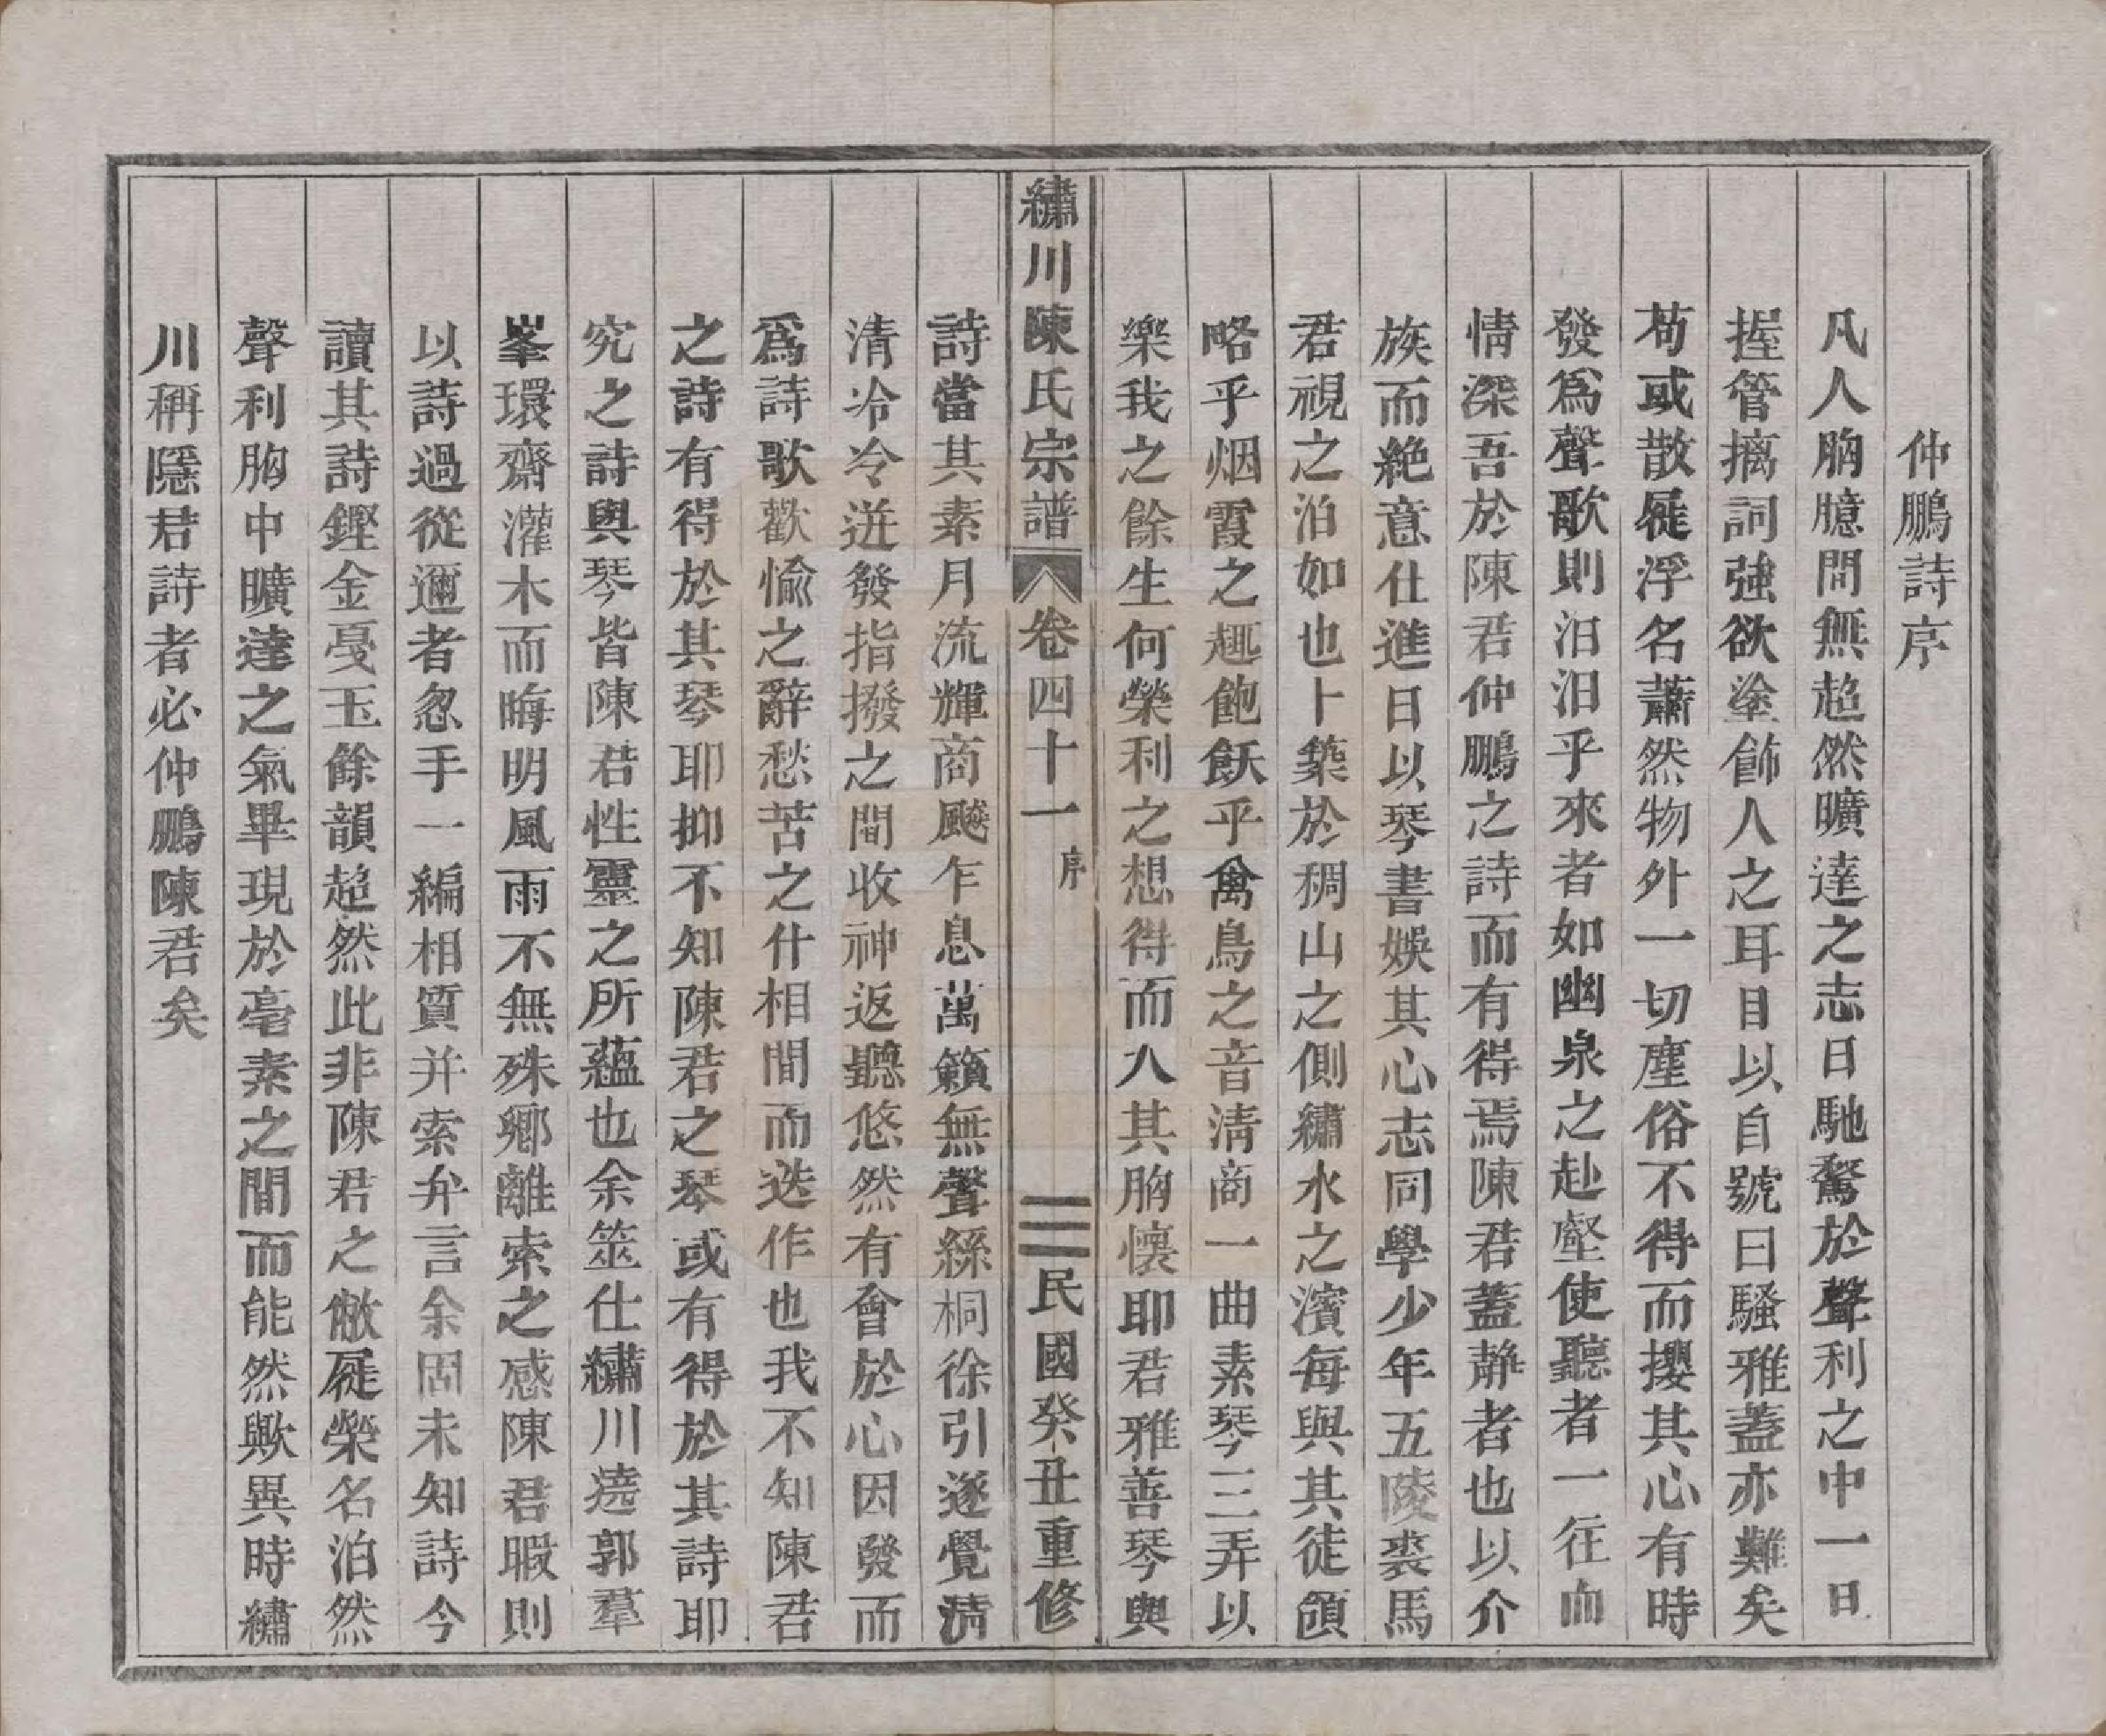 仲鵬詩序
凡人胸臆間無超然曠達之志日馳騖於聲利之中一日
握管摛詞強欲塗飾人之耳目以自號曰騷雅蓋亦難矣
苟或散屣浮名蕭然物外一切塵俗不得而攖其心有時
發爲聲歌則汩汩乎來者如幽泉之赴壑使聽者一往而
情深吾於陳君仲鵬之詩而有得焉陳君蓋靜者也以介
族而絶意仕進日以琴書娛其心志同學少年五陵裘馬
君視之泊如也卜築於稠山之側繡水之濱每與其徒領
略乎烟霞之趣飽飫乎禽鳥之音淸商一曲素琴三弄以
樂我之餘生何榮利之想得而入其胸懷耶君雅善琴與
繡川陳氏宗譜 卷四十一 序 三 民國癸丑重修
詩當其素月流輝商飈乍息萬籟無聲絲桐徐引遂覺淸
清冷冷迸發指撥之間收神返聽悠然有會於心因發而
爲詩歌歡愉之辭愁苦之什相間而迭作也我不知陳君
之詩有得於其琴耶抑不知陳君之琴或有得於其詩耶
究之詩與琴皆陳君性靈之所蘊也余筮仕繡川遶郭羣
峯環齋灌木而晦明風雨不無殊鄉離索之感陳君暇則
以詩過從邇者忽手一編相質并索弁言余固未知詩今
讀其詩鏗金戞玉餘韻超然此非陳君之敝屣榮名泊然
聲利胸中曠達之氣畢現於毫素之間而能然歟異時繡
川稱隱君詩者必仲鵬陳君矣